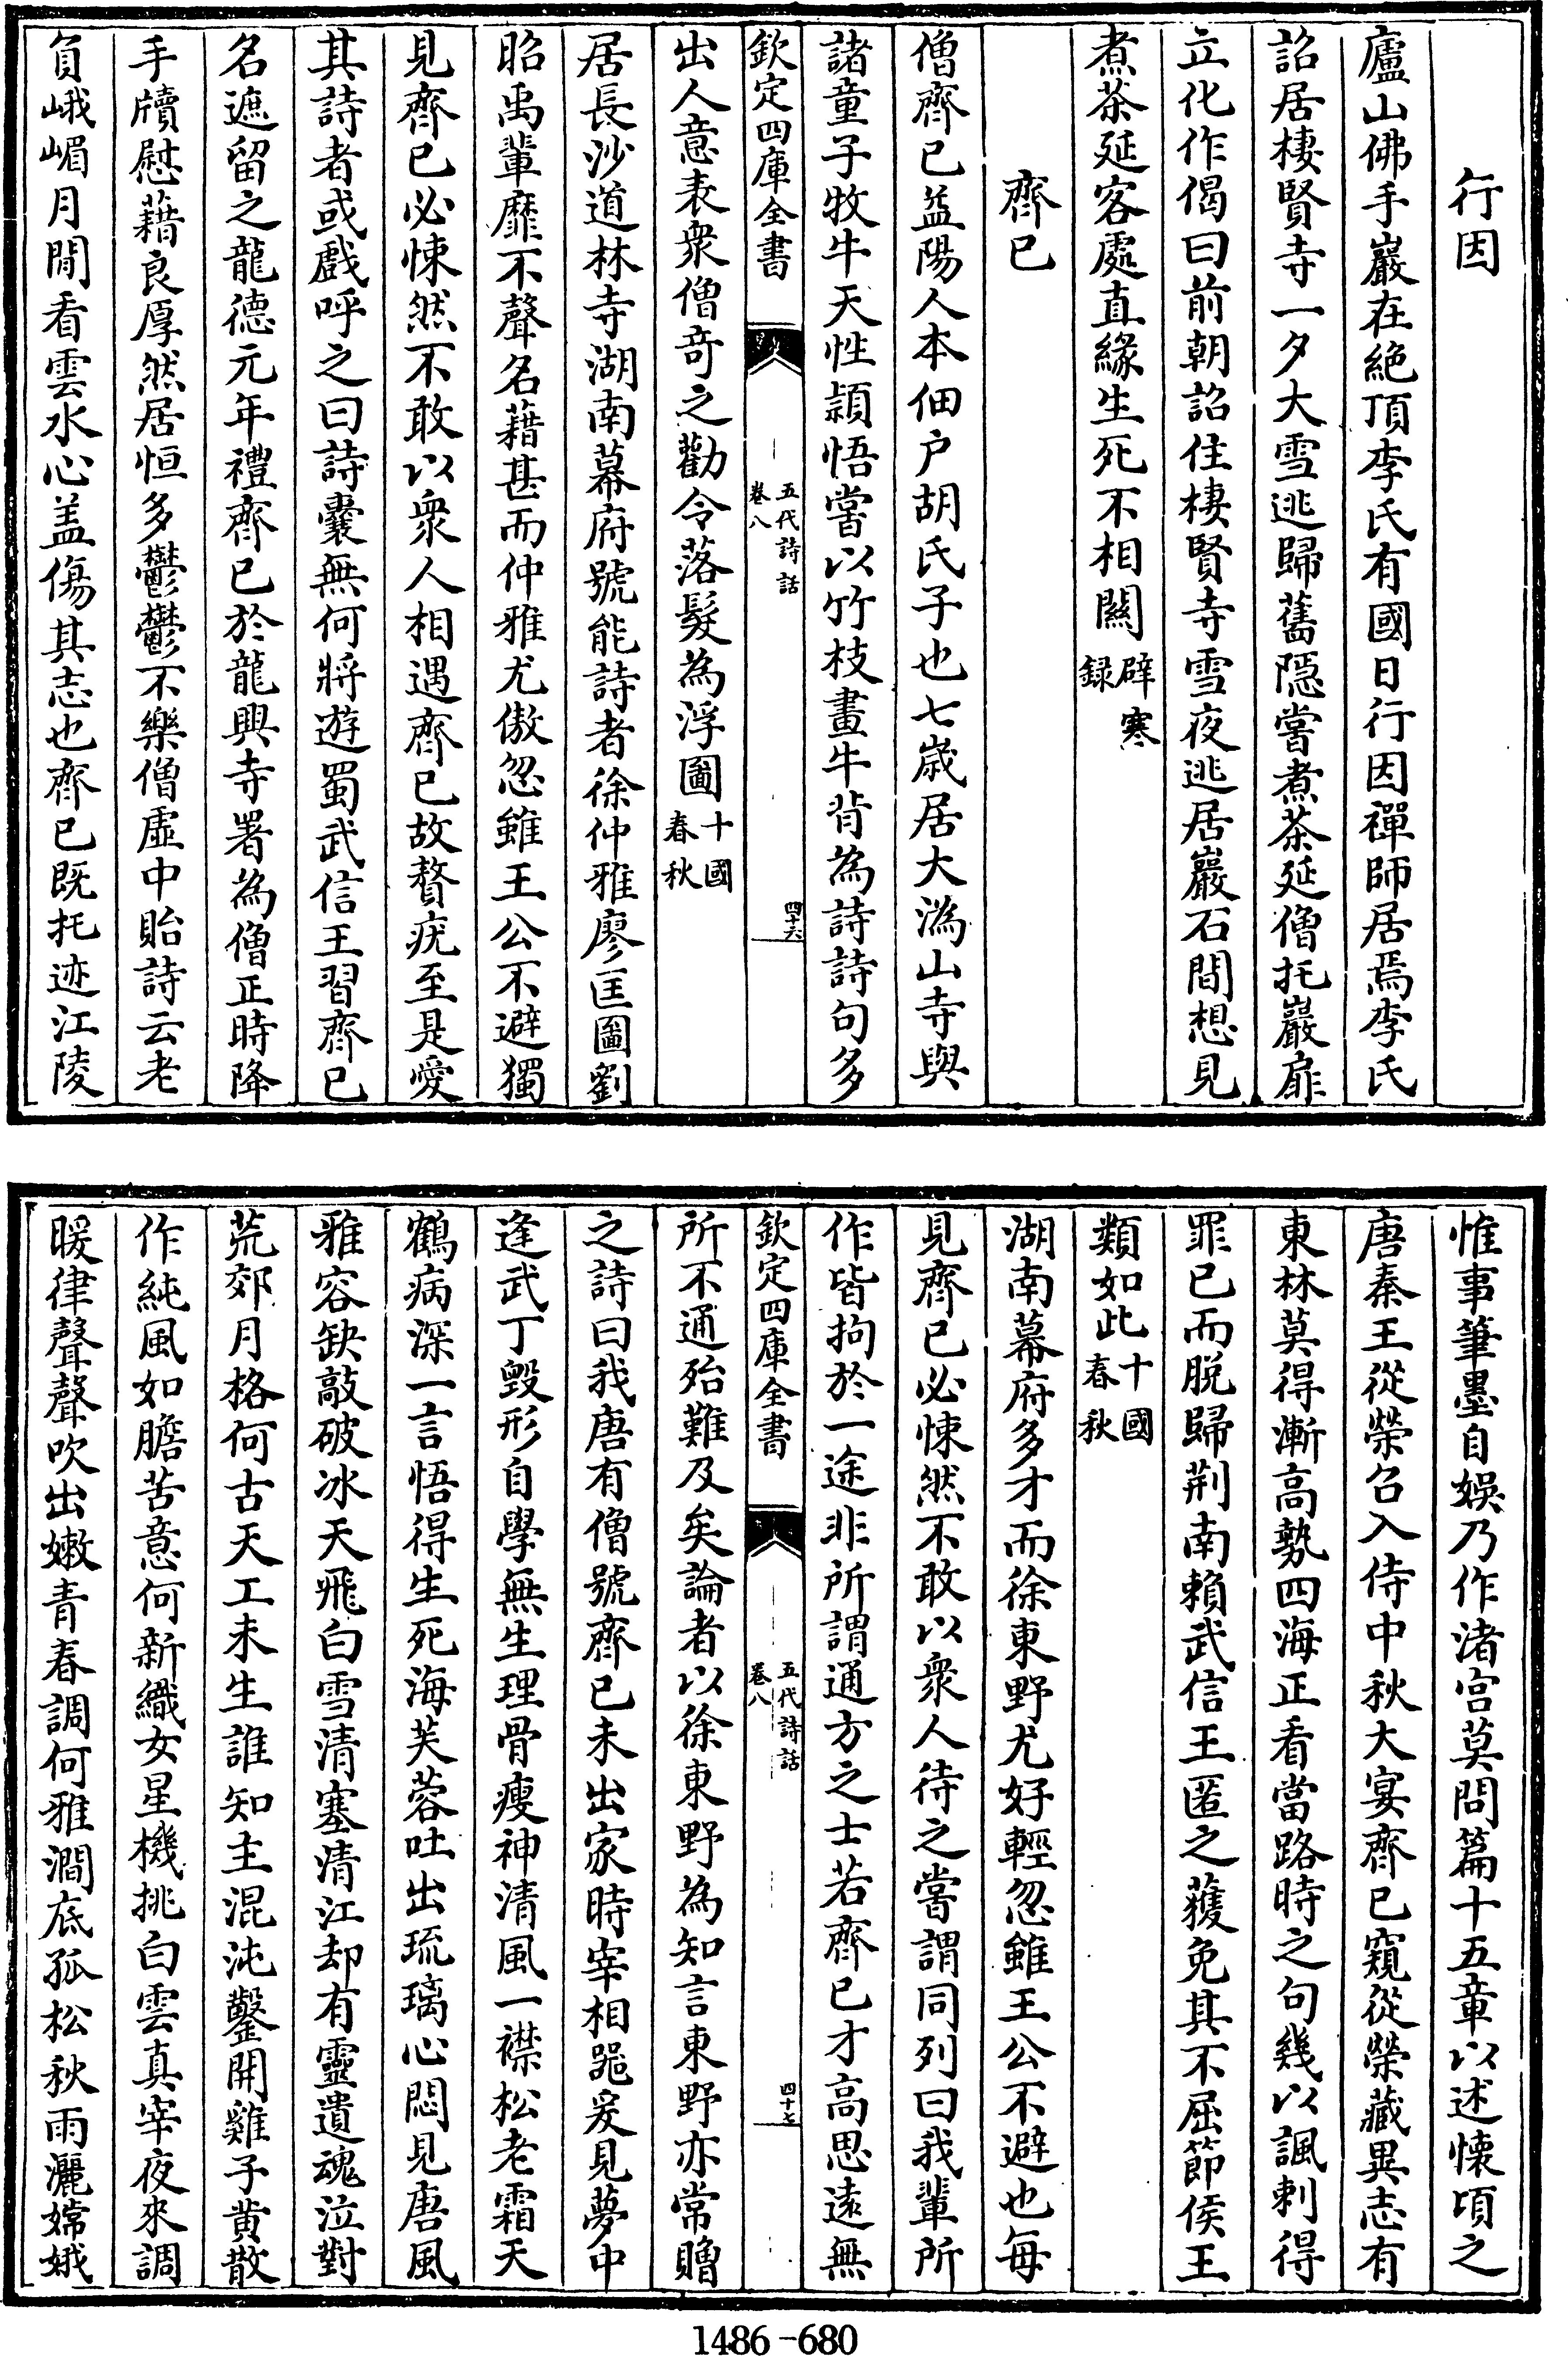 行因
廬山佛手巖在絶頂李氏有國日行因禪師居焉李氏
詔居棲賢寺一夕大雪逃歸舊隱嘗煮茶延僧托巖扉
立化作偈曰前朝詔住棲賢寺雪夜逃居巖石間想見
煮茶延客處直緣生死不相關辟寒録
齊已
僧齊已益陽人本佃户胡氏子也七歳居大溈山寺與
諸童子牧牛天性頴悟嘗以竹枝畫牛背為詩詩句多
欽定四庫全書
五代詩話
卷八
四十六
出人意表衆僧竒之勸令落髮為浮圖十國春秋
居長沙道林寺湖南幕府號能詩者徐仲雅廖匡圖劉
昭禹輩靡不聲名藉甚而仲雅尤傲忽雖王公不避獨
見齊已必悚然不敢以衆人相遇齊已故贅疣至是愛
其詩者或戲呼之曰詩囊無何將遊蜀武信王習齊已
名遮留之龍德元年禮齊已於龍興寺署為僧正時降
手牘慰藉良厚然居恒多鬱鬱不樂僧虛中貽詩云老
負峨嵋月閒看雲水心盖傷其志也齊已既托迹江陵
惟事筆墨自娛乃作渚宫莫問篇十五章以述懐頃之
唐秦王從榮召入侍中秋大宴齊已窺從榮藏異志有
東林莫得漸高勢四海正看當路時之句幾以諷刺得
罪已而脱歸荆南賴武信王匿之獲免其不屈節侯王
類如此十國春秋
湖南幕府多才而徐東野尤好輕忽雖王公不避也每
見齊已必悚然不敢以衆人待之嘗謂同列曰我輩所
作皆拘於一途非所謂通方之士若齊已才高思遠無
欽定四庫全書
五代詩話
卷八
四十七
所不通殆難及矣論者以徐東野為知言東野亦常贈
之詩曰我唐有僧號齊已未出家時宰相器爰見夢中
逢武丁毀形自學無生理骨瘦神清風一襟松老霜天
鶴病深一言悟得生死海芙蓉吐出琉璃心悶見唐風
雅容缺敲破冰天飛白雪清塞清江却有靈遺魂泣對
荒郊月格何古天工未生誰知主混沌鑿開雞子黄散
作純風如膽苦意何新織女星機挑白雲真宰夜來調
暖律聲聲吹出嫩青春調何雅澗底孤松秋雨灑嫦娥
1486-680